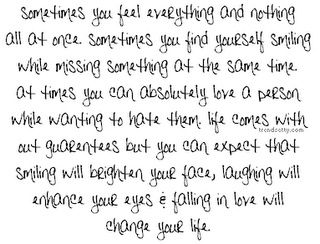 sometimes you feel everything and nothing
all at once. sometimes you find yourself smiling
while missing something at the same time.
at times you can absolutely love a person
while wanting to hate them. life comes with
trendcotty.com
out guarentees but you can expect that
smiling will brighten your face, laughing will
enhance your eyes & falling in love will
change your life.